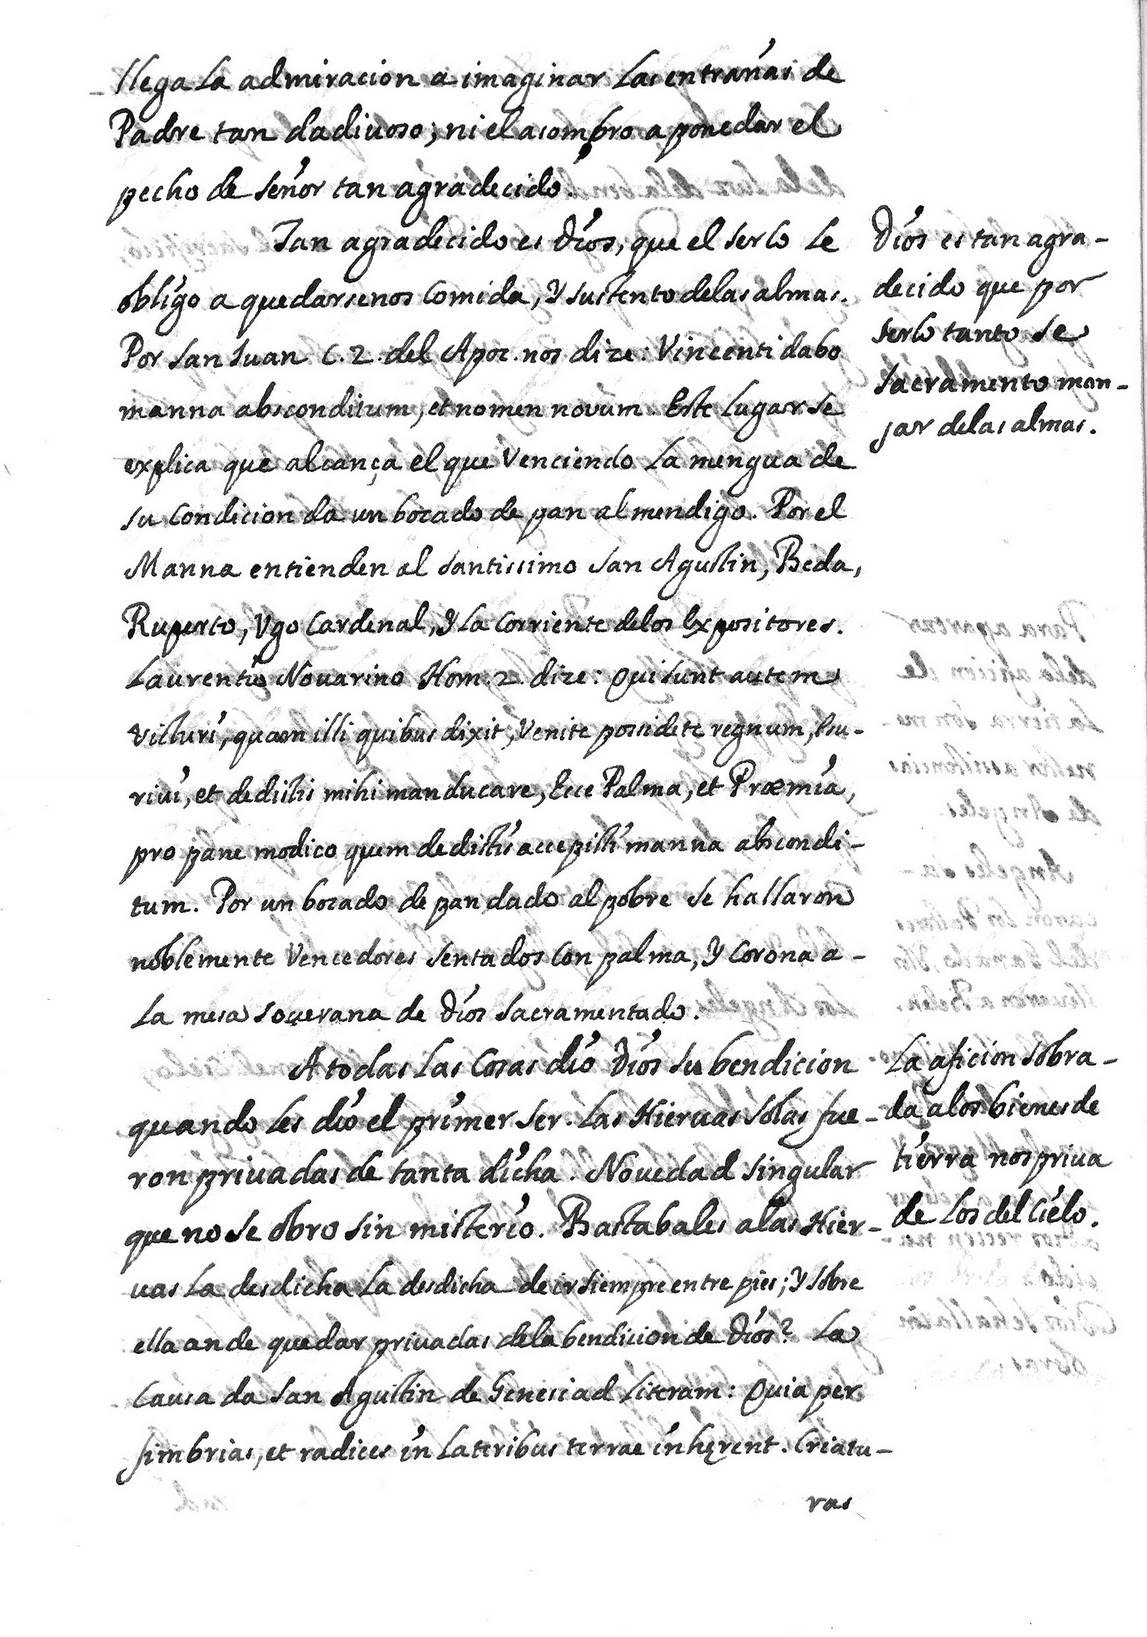 llega la admiracion a imaginar las entrañas de
Padre tan dadiuoso, ni el asombro a ponedar el
pecho de señor tan agradecido.
Tan agradecido es Dios, que el serlo le
obligo a quedarsenos comida, y sustento delas almas.
Por san Juan C. 2. del Apoc. nos dize: Vincenti dabo
manna absconditum, et nomen novum. Este lugar se
explica que alcança el que Venciendo la mengua de
su condicion da un bocado de pan al mendigo. Por el
Manna entienden al santissimo san Agustin, Beda,
Ruperto, Vgo Cardenal, y la Corriente delos Expositores.
Laurentio Nouarino Hom. 2. dize: Qui sunt autem
victuri, quam illi quibus dixit, Venite possidete regnum, Esu-
riui, et dedistis mihi manducare, Ecce Palma, et Præmia,
pro pane modico quem dedistis accepistis manna abscondi-
tum. Por un bocado de pan dado al pobre se hallaron
noblemente Vencedores sentados con palma, y corona a-
la mesa souerana de Dios sacramentado.
A todas las Cosas dio Dios su bendicion
quando les dio el primer ser. las Hieruas solas fue-
ron priuadas de tanta dicha. Novedad singular
que no se obro sin misterio. Bastabales alas Hier-
uas la desdicha la desdicha de ir siempre entre pies; y sobre
ella an de quedar priuadas dela bendicion de Dios? La
Causa da san Agustin de Genesi ad Literam: Quia per
fimbrias, et radices in lateribus terrae inhęrent. Criatu-
ras
Dios es tan agra-
decido que por
serlo tanto se
sacramento man-
jar delas almas.
La aficion sobra-
da alos bienes de
tierra nos priua
de los del Cielo.